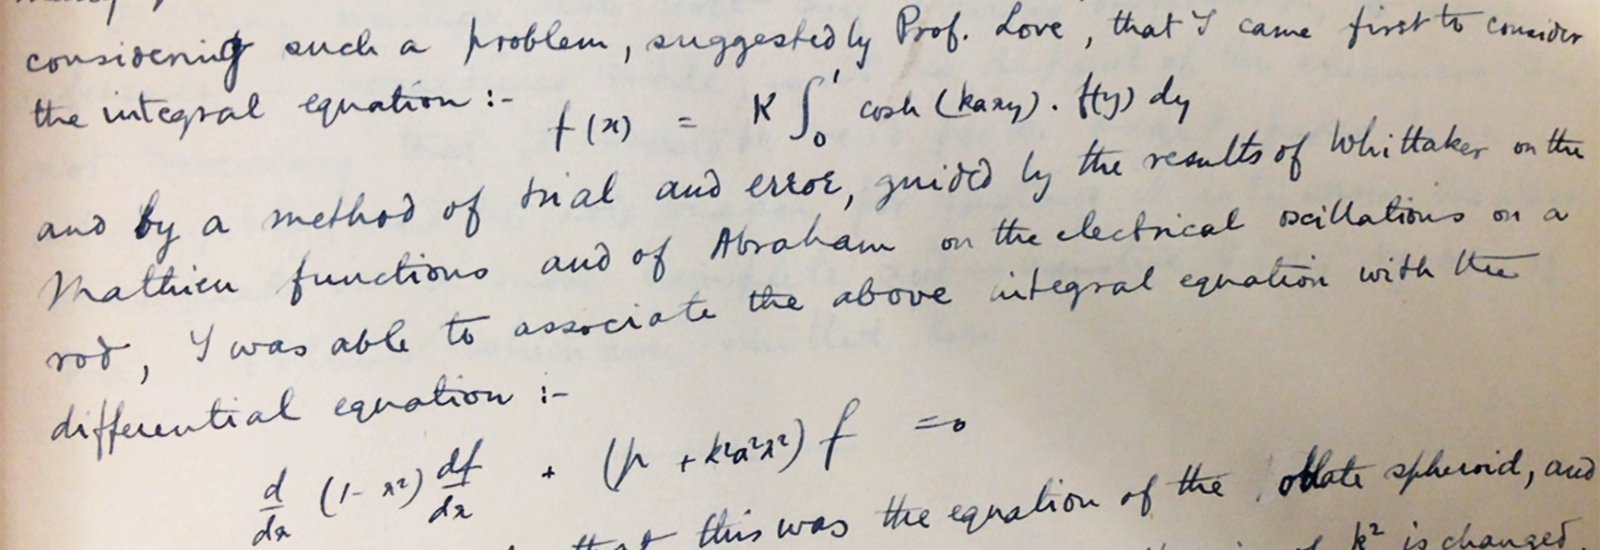 considering such a problem, suggested by Prof. Love, that I came first to consider
the integral equation :- f(x) = K ∫₀¹ cosh (kaxy) . f(y) dy
and by a method of trial and error, guided by the results of Whittaker on the
Mathieu functions and of Abraham on the electrical oscillations on a
rod, I was able to associate the above integral equation with the
differential equation :-
d/dx (1-x²) df/dx + (μ + k²a²x²) f = 0
that this was the equation of the oblate spheroid, and
of k² is changed.